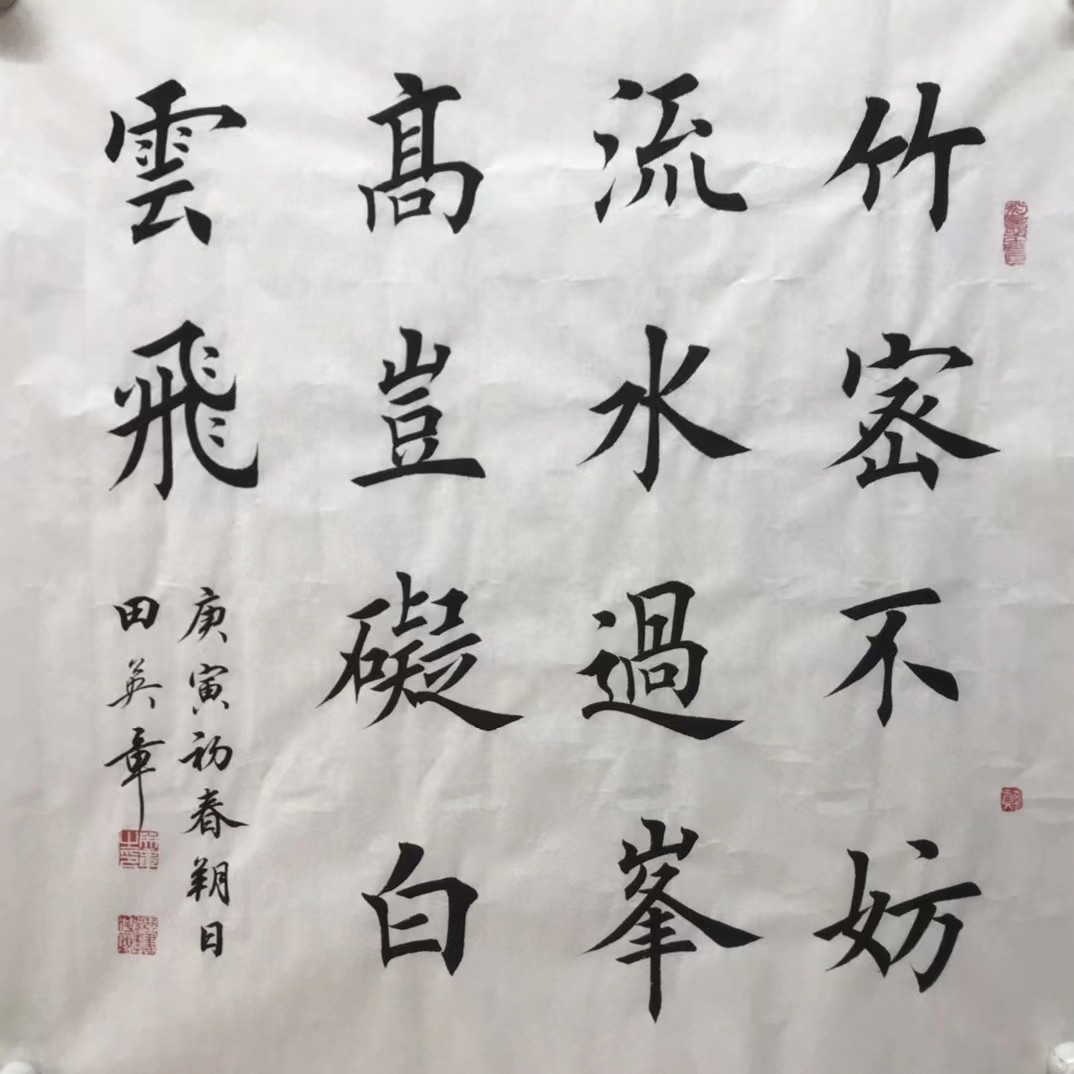 竹密不妨
流水過峯
髙豈礙白
雲飛
庚寅初春朔日
田英章